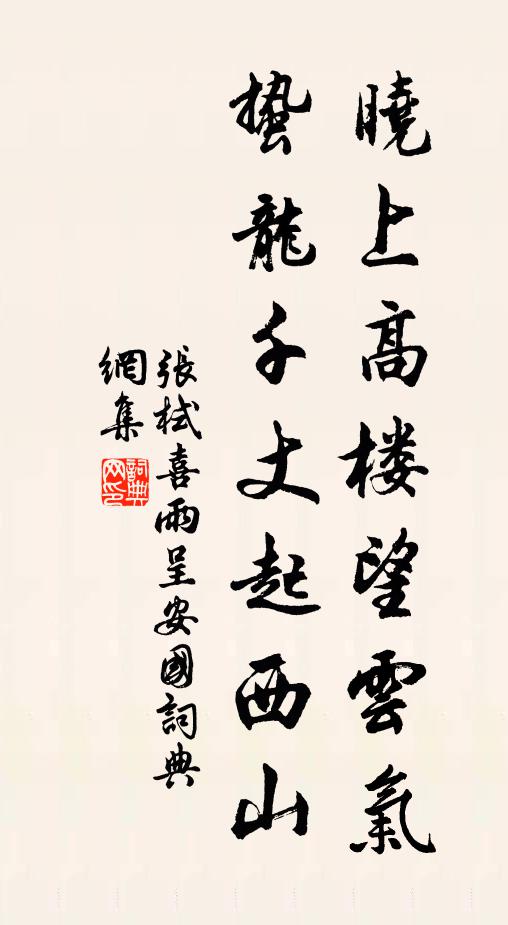 曉上高楼望雲氣
蟄龍千丈起西山
張栻喜雨呈安國詞典
網集
詞典
网印